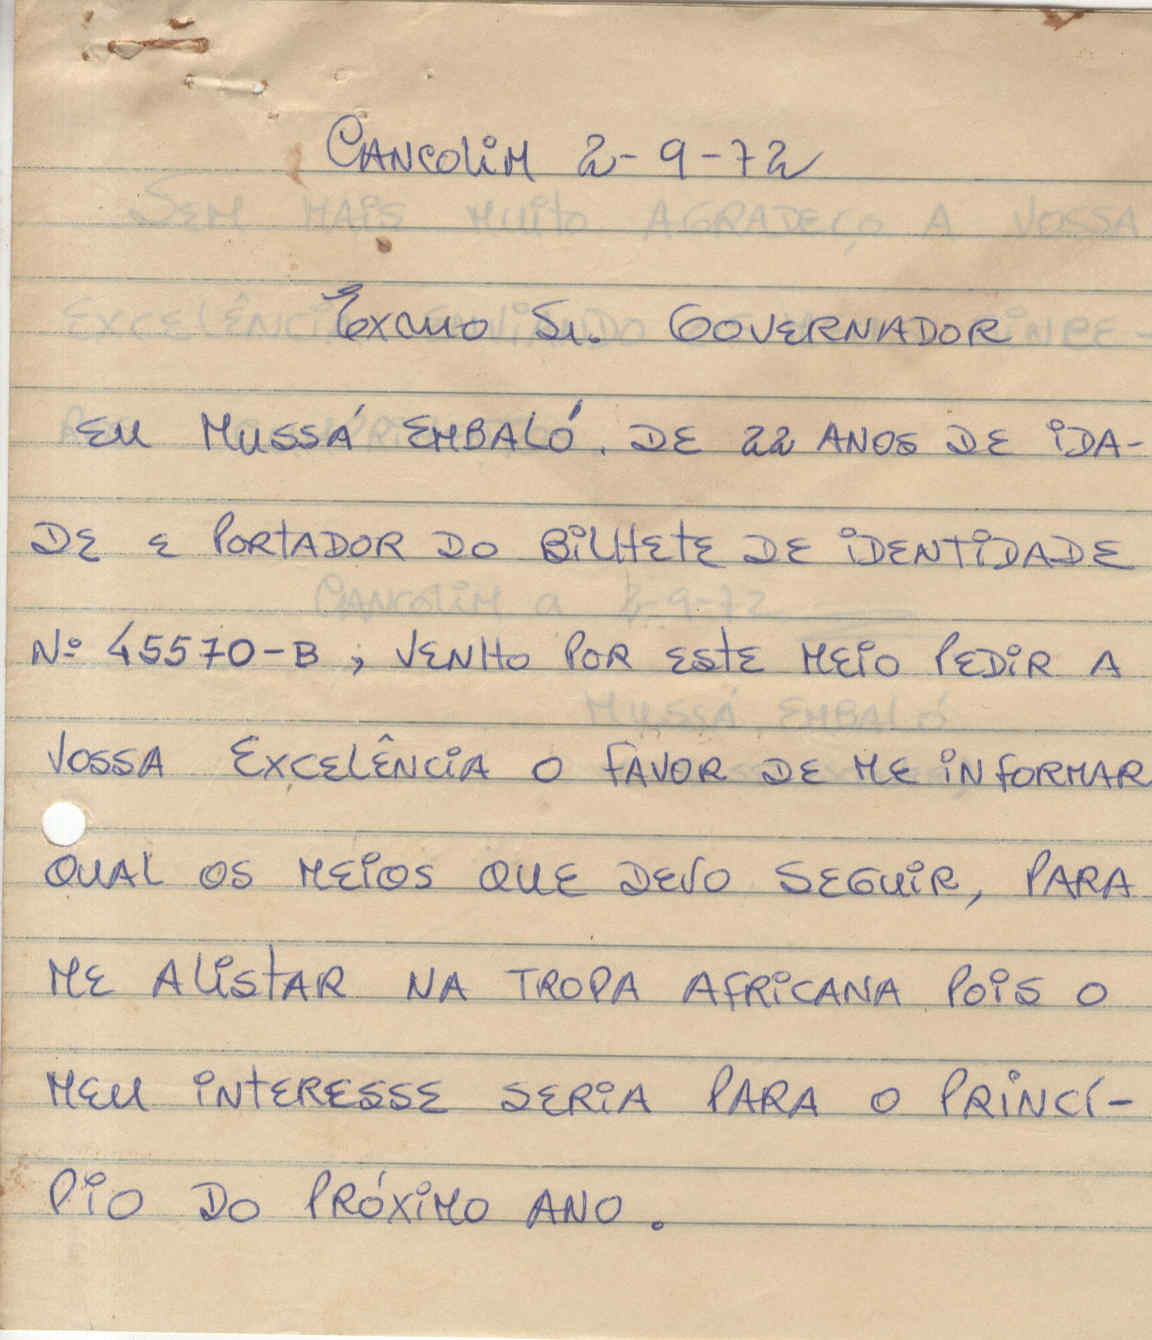 Cancolim 2-9-72
Excmo Sr. Governador
Eu Mussá Embaló. de 22 anos de ida-
de e portador do bilhete de identidade
Nº 45570-B, venho por este meio pedir a
Vossa Excelência o favor de me informar
qual os meios que devo seguir, para
me alistar na tropa africana pois o
meu interesse seria para o princí-
pio do próximo ano.